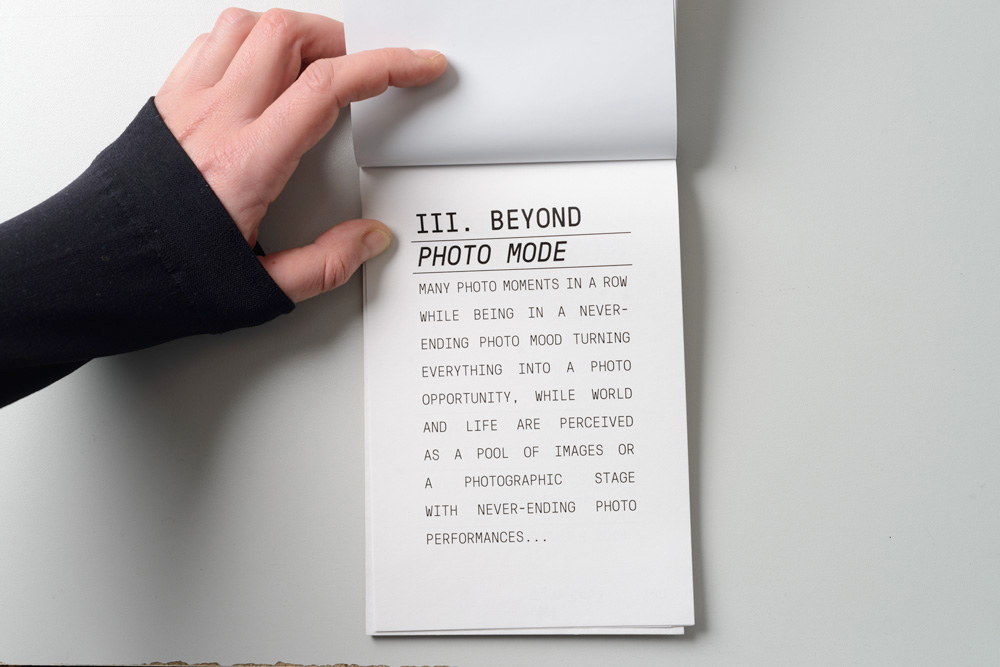 III. BEYOND
PHOTO MODE
MANY PHOTO MOMENTS IN A ROW
WHILE BEING IN A NEVER-
ENDING PHOTO MOOD TURNING
EVERYTHING INTO A PHOTO
OPPORTUNITY, WHILE WORLD
AND LIFE ARE PERCEIVED
AS A POOL OF IMAGES OR
A PHOTOGRAPHIC STAGE
WITH NEVER-ENDING PHOTO
PERFORMANCES...